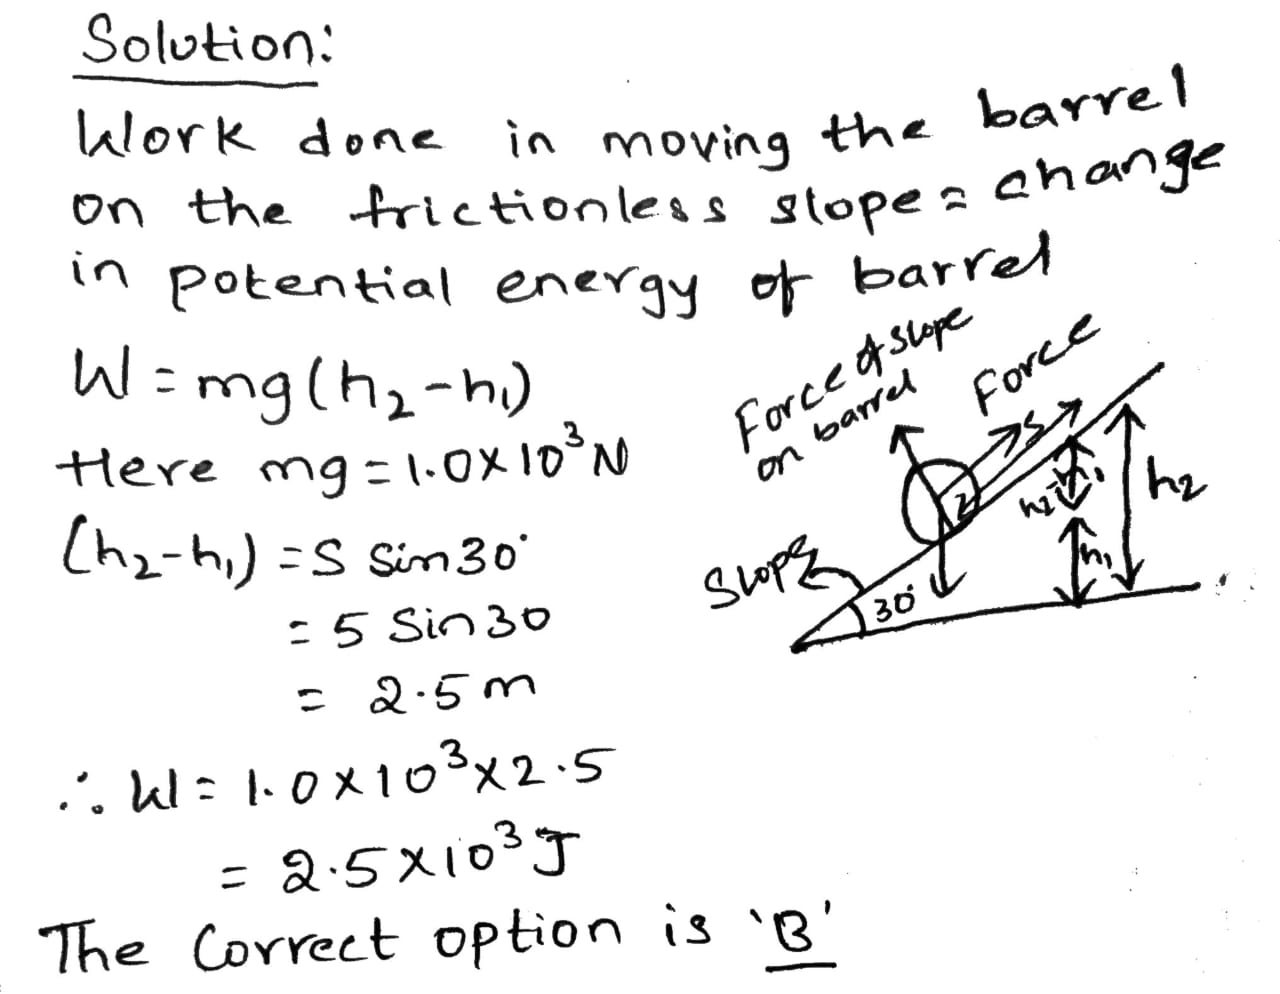 Solution:
Work done in moving the barrel
on the frictionless slope = change
in potential energy of barrel
W = mg(h₂-h₁)
Here mg = 1.0×10³N
(h₂-h₁) = S Sin30°
= 5 Sin30
= 2.5m
∴ W = 1.0×10³×2.5
= 2.5×10³J
The Correct option is 'B'
Force of slope
on barrel
Force
S
h₂-h₁
h₂
h₁
Slope
30°